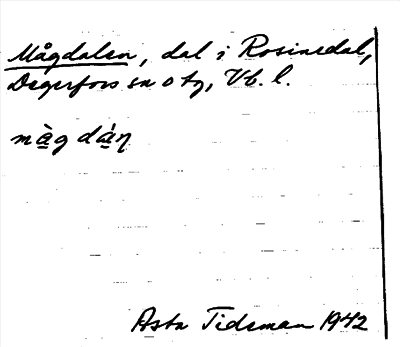 Mågdalen, dal i Rosinedal,
Degerfors sn o tg, Vb. l.
mà̱g dà̱ņ
Asta Tidsman 1942